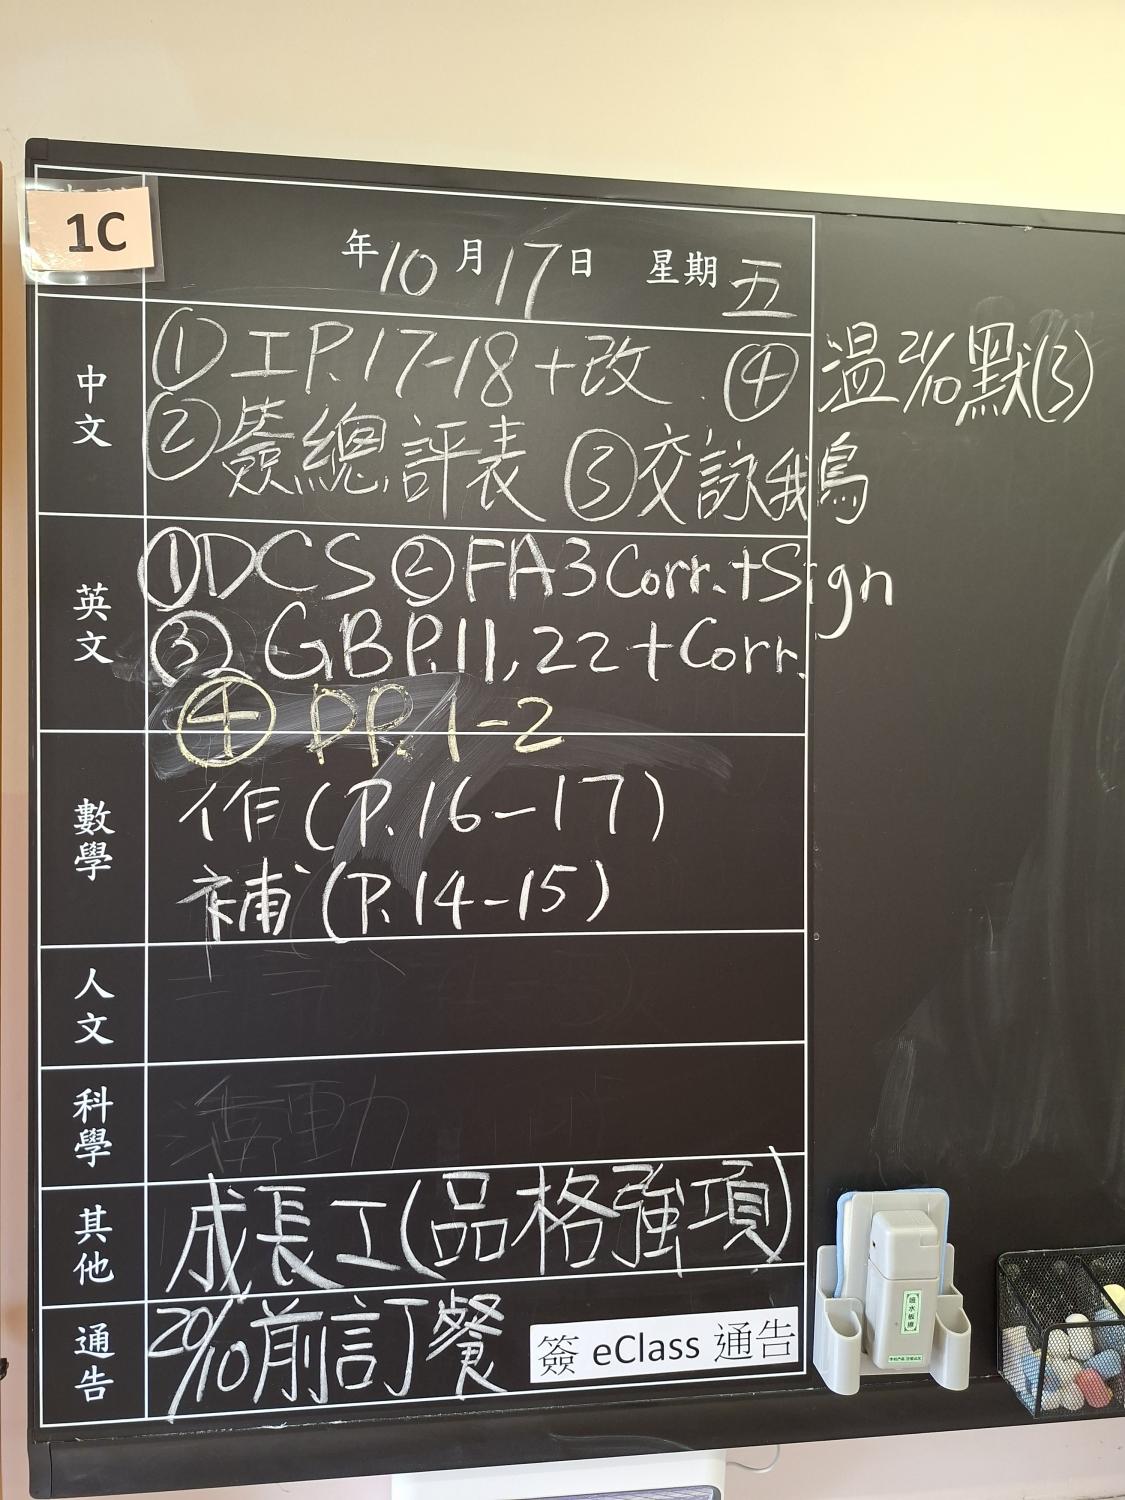 1C
年10月17日 星期五
中文
①工P.17-18+改 ④溫21/10默(3)
②簽總評表 ③交詠鵝
英文
①DCS ②FA3 Corr.+Sign
③GBP.11,22+Corr.
④PP.1-2
數學
作(P.16-17)
補(P.14-15)
人文
科學
活動
其他
成長工(品格強項)
通告
20/10前訂餐
簽 eClass 通告